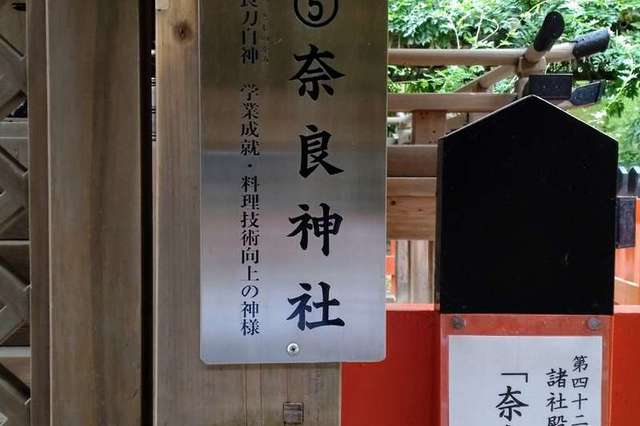 ⑤奈良神社
良刀自神　学業成就・料理技術向上の神様
第四十二
諸社殿
「奈